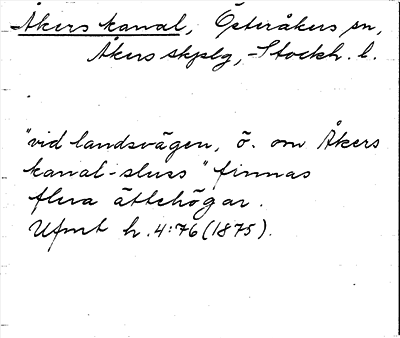 Åkers kanal, Österåkers sn,
Åkers skplg, Stockh. l.
"vid landsvägen, ö. om Åkers
kanal-sluss" finnas
flera ättehögar.
Ufmt h. 4:76 (1875).